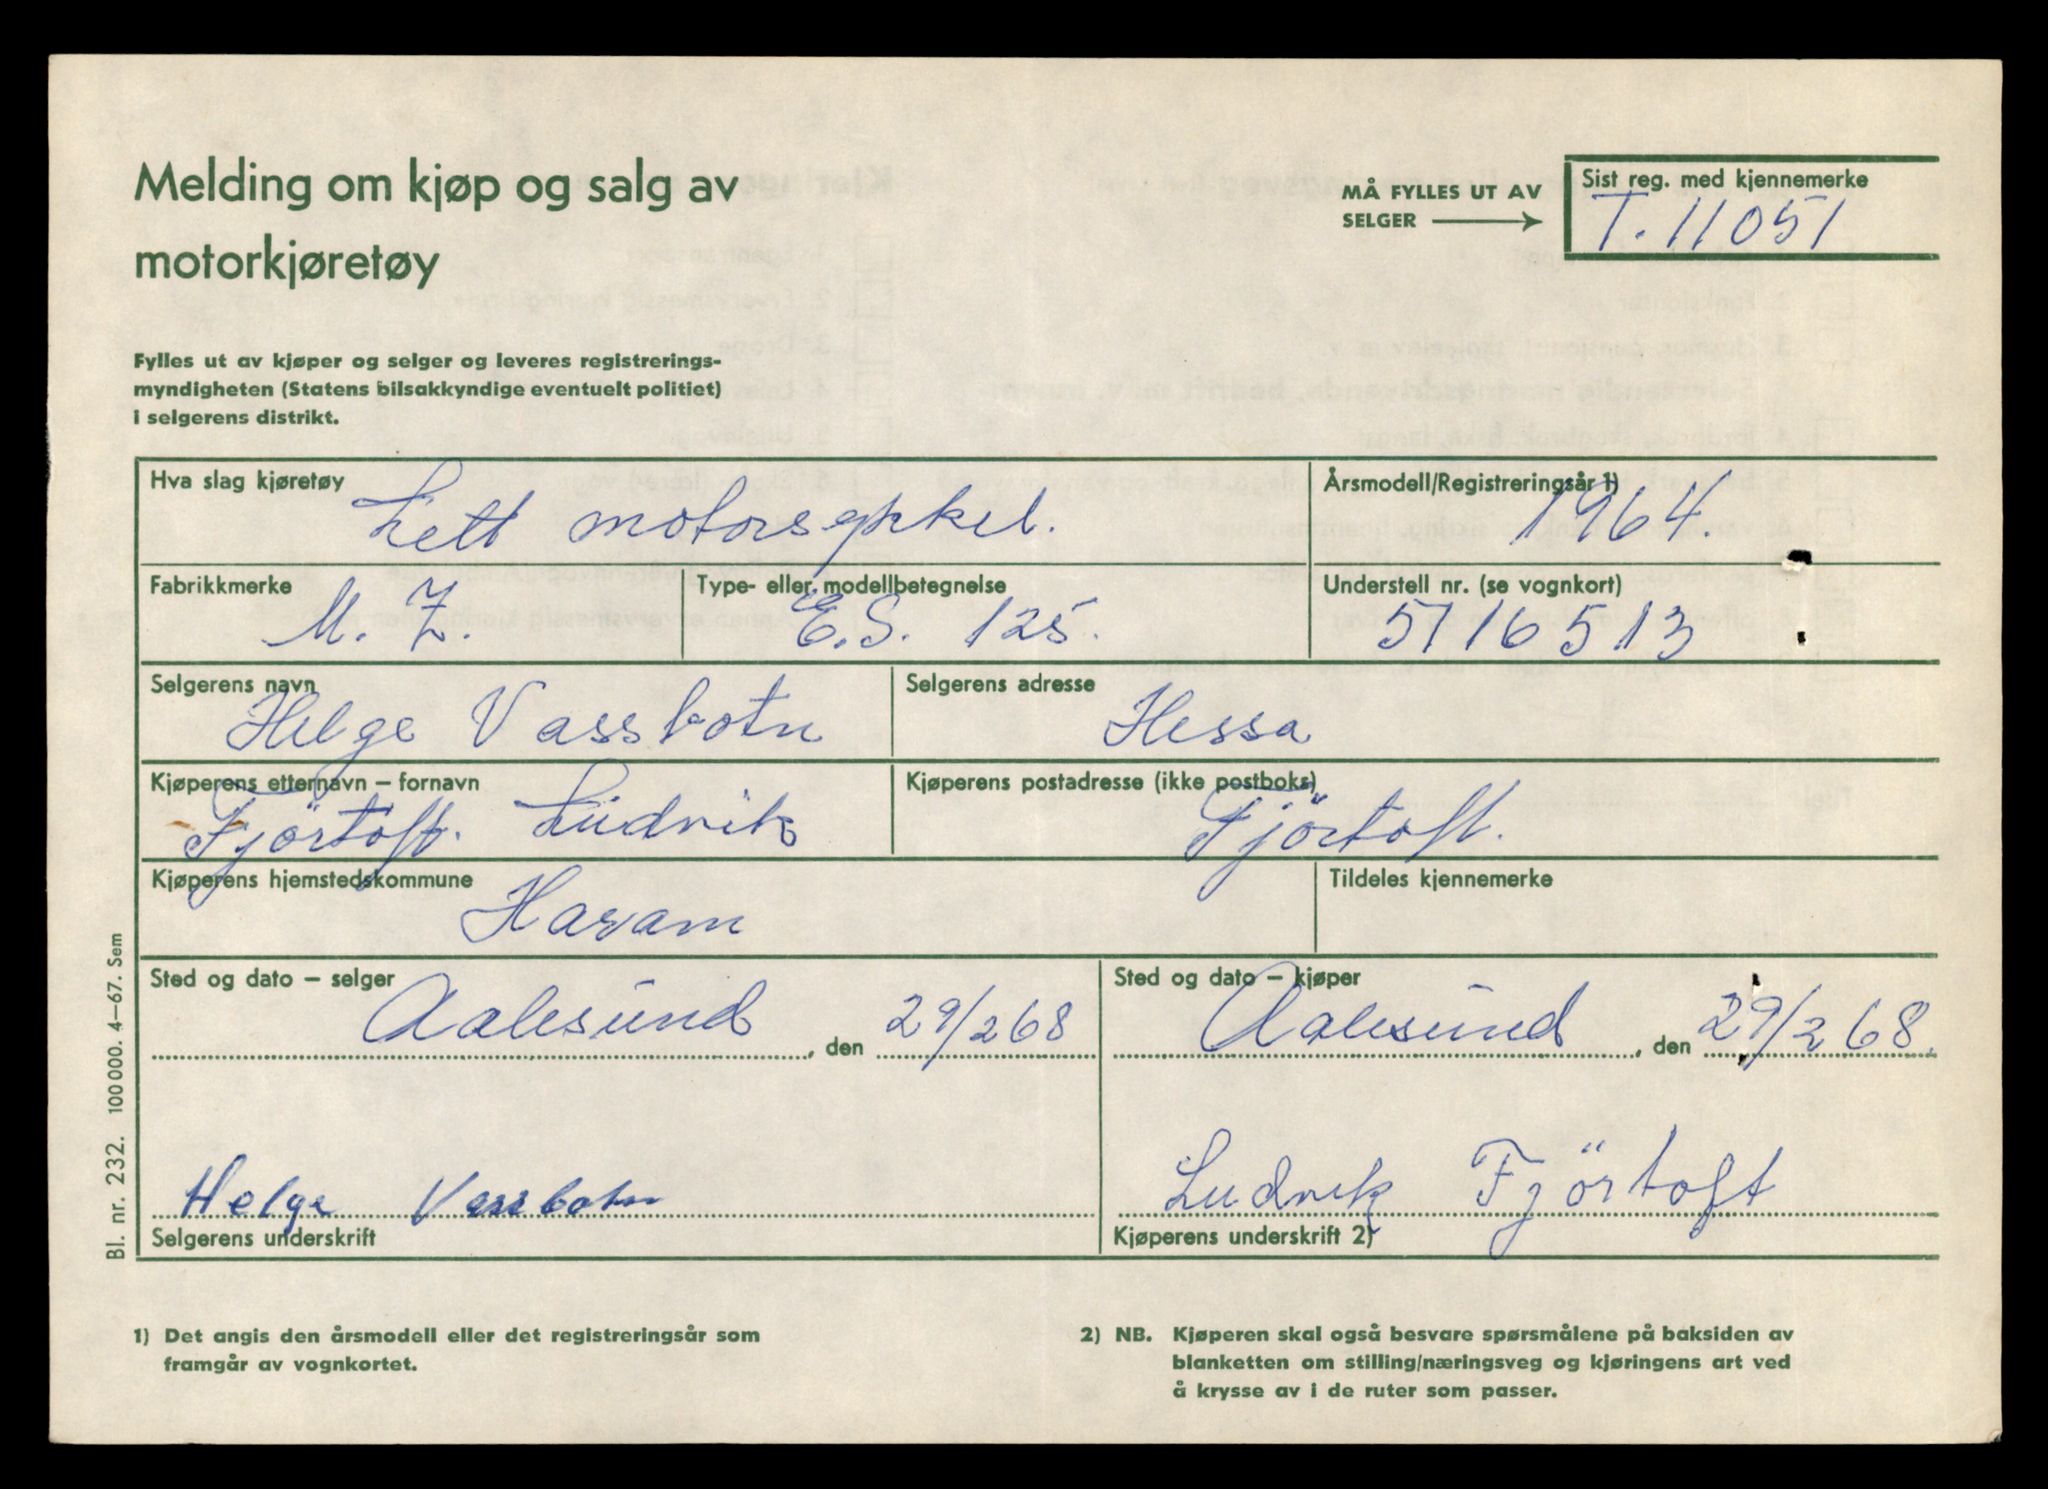 Melding om kjøp og salg av
motorkjøretøy
MÅ FYLLES UT AV
SELGER
Sist reg. med kjennemerke
T. 11051
Fylles ut av kjøper og selger og leveres registrerings-
myndigheten (Statens bilsakkyndige eventuelt politiet)
i selgerens distrikt.
Hva slag kjøretøy
Lett motorsykkel.
Årsmodell/Registreringsår 1)
1964.
Fabrikkmerke
M. Z.
Type- eller modellbetegnelse
E.S. 125.
Understell nr. (se vognkort)
5116513
Selgerens navn
Helge Vassbotn
Selgerens adresse
Hessa
Kjøperens etternavn – fornavn
Fjörtoft. Ludvik
Kjøperens postadresse (ikke postboks)
Fjörtoft.
Kjøperens hjemstedskommune
Haram
Tildeles kjennemerke
Sted og dato – selger
Aalesund, den 29/2 68
Sted og dato – kjøper
Aalesund, den 29/2 68.
Helge Vassbotn
Selgerens underskrift
Ludvik Fjörtoft
Kjøperens underskrift 2)
Bl. nr. 232. 100 000. 4–67. Sem
1) Det angis den årsmodell eller det registreringsår som
framgår av vognkortet.
2) NB. Kjøperen skal også besvare spørsmålene på baksiden av
blanketten om stilling/næringsveg og kjøringens art ved
å krysse av i de ruter som passer.